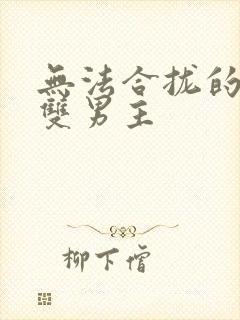 無法合拢的
雙男主
柳下僧